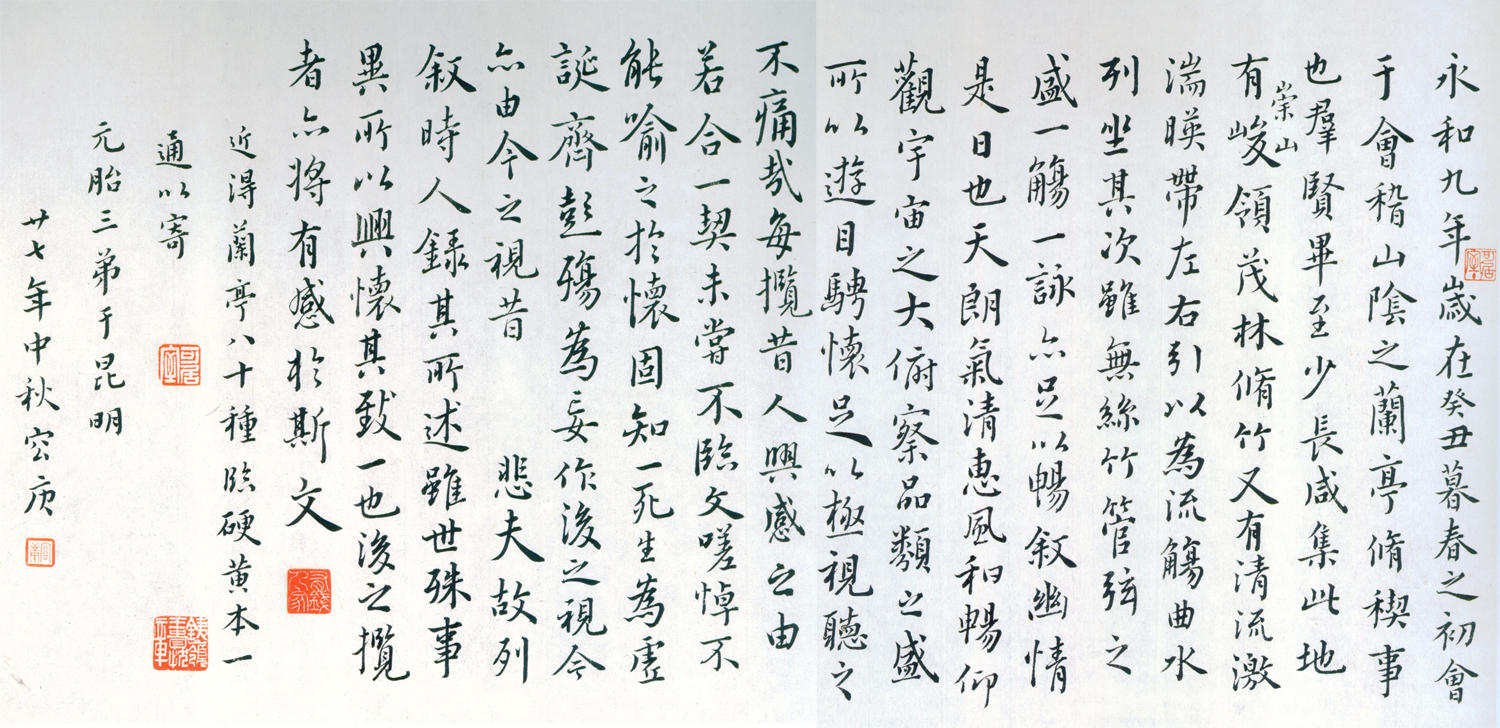 永和九年歲在癸丑暮春之初會
于會稽山陰之蘭亭脩稧事
也羣賢畢至少長咸集此地
有崇山峻領茂林脩竹又有清流激
湍暎帶左右引以為流觴曲水
列坐其次雖無絲竹管弦之
盛一觴一詠亦足以暢叙幽情
是日也天朗氣清惠風和暢仰
觀宇宙之大俯察品類之盛
所以遊目騁懷足以極視聽之
不痛哉每攬昔人興感之由
若合一契未嘗不臨文嗟悼不
能喻之於懷固知一死生為虛
誕齊彭殤為妄作後之視今
亦由今之視昔 悲夫故列
叙時人錄其所述雖世殊事
異所以興懷其致一也後之攬
者亦將有感於斯文
近得蘭亭八十種臨硬黃本一
通以寄
元胎三弟于昆明
廿七年中秋容庚